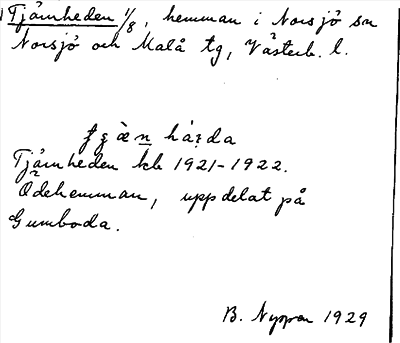 Tjärnheden 1/8, hemman i Norsjö sn
Norsjö och Malå tg, Västerb. l.
Tjärnheden kb 1921-1922.
Ödehemman, uppdelat på
Gumboda.
B. Nyman 1929